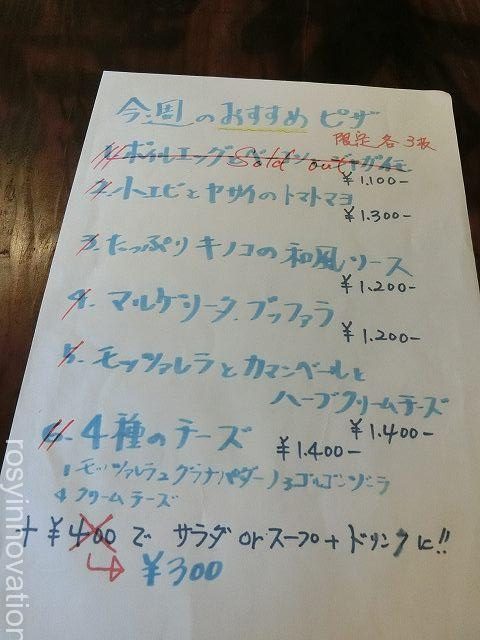 今週のおすすめピザ
限定各3枚
1. ボイルエッグ
Sold out
¥1.100-
2. 小エビとヤサイのトマトマヨ
¥1.300-
3. たっぷりキノコの和風ソース
¥1.200-
4. マルゲリータ.ブッファラ
¥1.200-
5. モッツァレラとカマンベールと
ハーブクリームチーズ
¥1.400-
6. 4種のチーズ
¥1.400-
1モッツァレラ2グラナパダーノ3ゴルゴンゾーラ
4クリームチーズ
+¥400で サラダorスープ+ドリンクに!!
→¥300
rosyinnovation